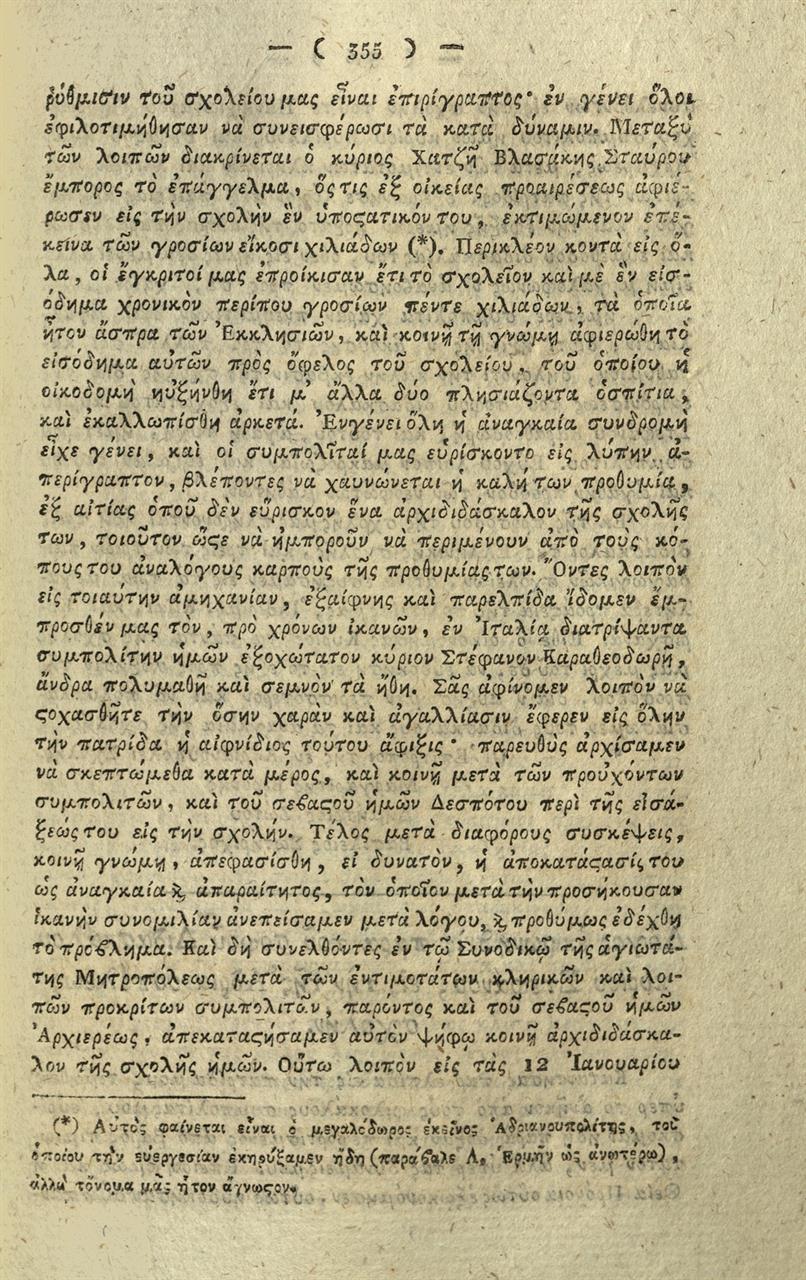 — ( 355 ) —
ῥύθμισιν τοῦ σχολείου μας εἶναι ἐπιρίγραπτος· ἐν γένει ὅλοι
ἐφιλοτιμήθησαν νὰ συνεισφέρωσι τὰ κατὰ δύναμιν. Μεταξὺ
τῶν λοιπῶν διακρίνεται ὁ κύριος Χατζῆ Βλασάκης Σταύρου
ἔμπορος τὸ ἐπάγγελμα, ὅςτις ἐξ οἰκείας προαιρέσεως ἀφιέ-
ρωσεν εἰς τὴν σχολὴν ἓν ὑποςατικόν του, ἐκτιμώμενον ἐπέ-
κεινα τῶν γροσίων εἴκοσι χιλιάδων (*). Περιπλέον κοντὰ εἰς ὅ-
λα, οἱ ἔγκριτοί μας ἐπροίκισαν ἔτι τὸ σχολεῖον καὶ μὲ ἓν εἰσ-
όδημα χρονικὸν περίπου γροσίων πέντε χιλιάδων, τὰ ὁποῖα
ἦτον ἄσπρα τῶν Ἐκκλησιῶν, καὶ κοινῇ τῇ γνώμῃ ἀφιερώθη τὸ
εἰσόδημα αὐτῶν πρὸς ὄφελος τοῦ σχολείου, τοῦ ὁποίου ἡ
οἰκοδομὴ ηὐξήνθη ἔτι μ' ἄλλα δύο πλησιάζοντα ὁσπίτια,
καὶ ἐκαλλωπίσθη ἀρκετά. Ἐνγένει ὅλη ἡ ἀναγκαία συνδρομὴ
εἶχε γένει, καὶ οἱ συμπολῖταί μας εὑρίσκοντο εἰς λύπην ἀ-
περίγραπτον, βλέποντες νὰ χαυνώνεται ἡ καλή των προθυμία,
ἐξ αἰτίας ὁποῦ δὲν εὕρισκον ἕνα ἀρχιδιδάσκαλον τῆς σχολῆς
των, τοιοῦτον ὥςε νὰ ἠμποροῦν νὰ περιμένουν ἀπὸ τοὺς κό-
πους του ἀναλόγους καρποὺς τῆς προθυμίας των. Ὄντες λοιπὸν
εἰς τοιαύτην ἀμηχανίαν, ἐξαίφνης καὶ παρελπίδα ἴδομεν ἔμ-
προσθέν μας τὸν, πρὸ χρόνων ἱκανῶν, ἐν Ἰταλίᾳ διατρίψαντα
συμπολίτην ἡμῶν ἐξοχώτατον κύριον Στέφανον Καραθεοδωρῆ,
ἄνδρα πολυμαθῆ καὶ σεμνὸν τὰ ἤθη. Σᾶς ἀφίνομεν λοιπὸν νὰ
ςοχασθῆτε τὴν ὅσην χαρὰν καὶ ἀγαλλίασιν ἔφερεν εἰς ὅλην
τὴν πατρίδα ἡ αἰφνίδιος τούτου ἄφιξις· παρευθὺς ἀρχίσαμεν
νὰ σκεπτώμεθα κατὰ μέρος, καὶ κοινῇ μετὰ τῶν προὐχόντων
συμπολιτῶν, καὶ τοῦ σεβαςοῦ ἡμῶν Δεσπότου περὶ τῆς εἰσά-
ξεώς του εἰς τὴν σχολήν. Τέλος μετὰ διαφόρους συσκέψεις,
κοινῇ γνώμῃ, ἀπεφασίσθη, εἰ δυνατὸν, ἡ ἀποκατάςασίς του
ὡς ἀναγκαία ϗ ἀπαραίτητος, τὸν ὁποῖον μετὰ τὴν προσήκουσαν
ἱκανὴν συνομιλίαν ἀνεπείσαμεν μετὰ λόγου, ϗ προθύμως ἐδέχθη
τὸ πρόβλημα. Καὶ δὴ συνελθόντες ἐν τῷ Συνοδικῷ τῆς ἁγιωτά-
της Μητροπόλεως μετὰ τῶν ἐντιμοτάτων κληρικῶν καὶ λοι-
πῶν προκρίτων συμπολιτῶν, παρόντος καὶ τοῦ σεβαςοῦ ἡμῶν
Ἀρχιερέως, ἀπεκαταςήσαμεν αὐτὸν ψήφῳ κοινῇ ἀρχιδιδάσκα-
λον τῆς σχολῆς ἡμῶν. Οὕτω λοιπὸν εἰς τὰς 12 Ἰανουαρίου
(*) Αὐτὸς φαίνεται εἶναι ὁ μεγαλόδωρος ἐκεῖνος Ἀδριανουπολίτης, τοῦ
ὁποίου τὴν εὐεργεσίαν ἐκηρύξαμεν ἤδη (παράβαλε Λ. Ἑρμῆν ὡς ἀνωτέρω),
ἀλλὰ τὄνομα μᾶς ἦτον ἄγνωςον.